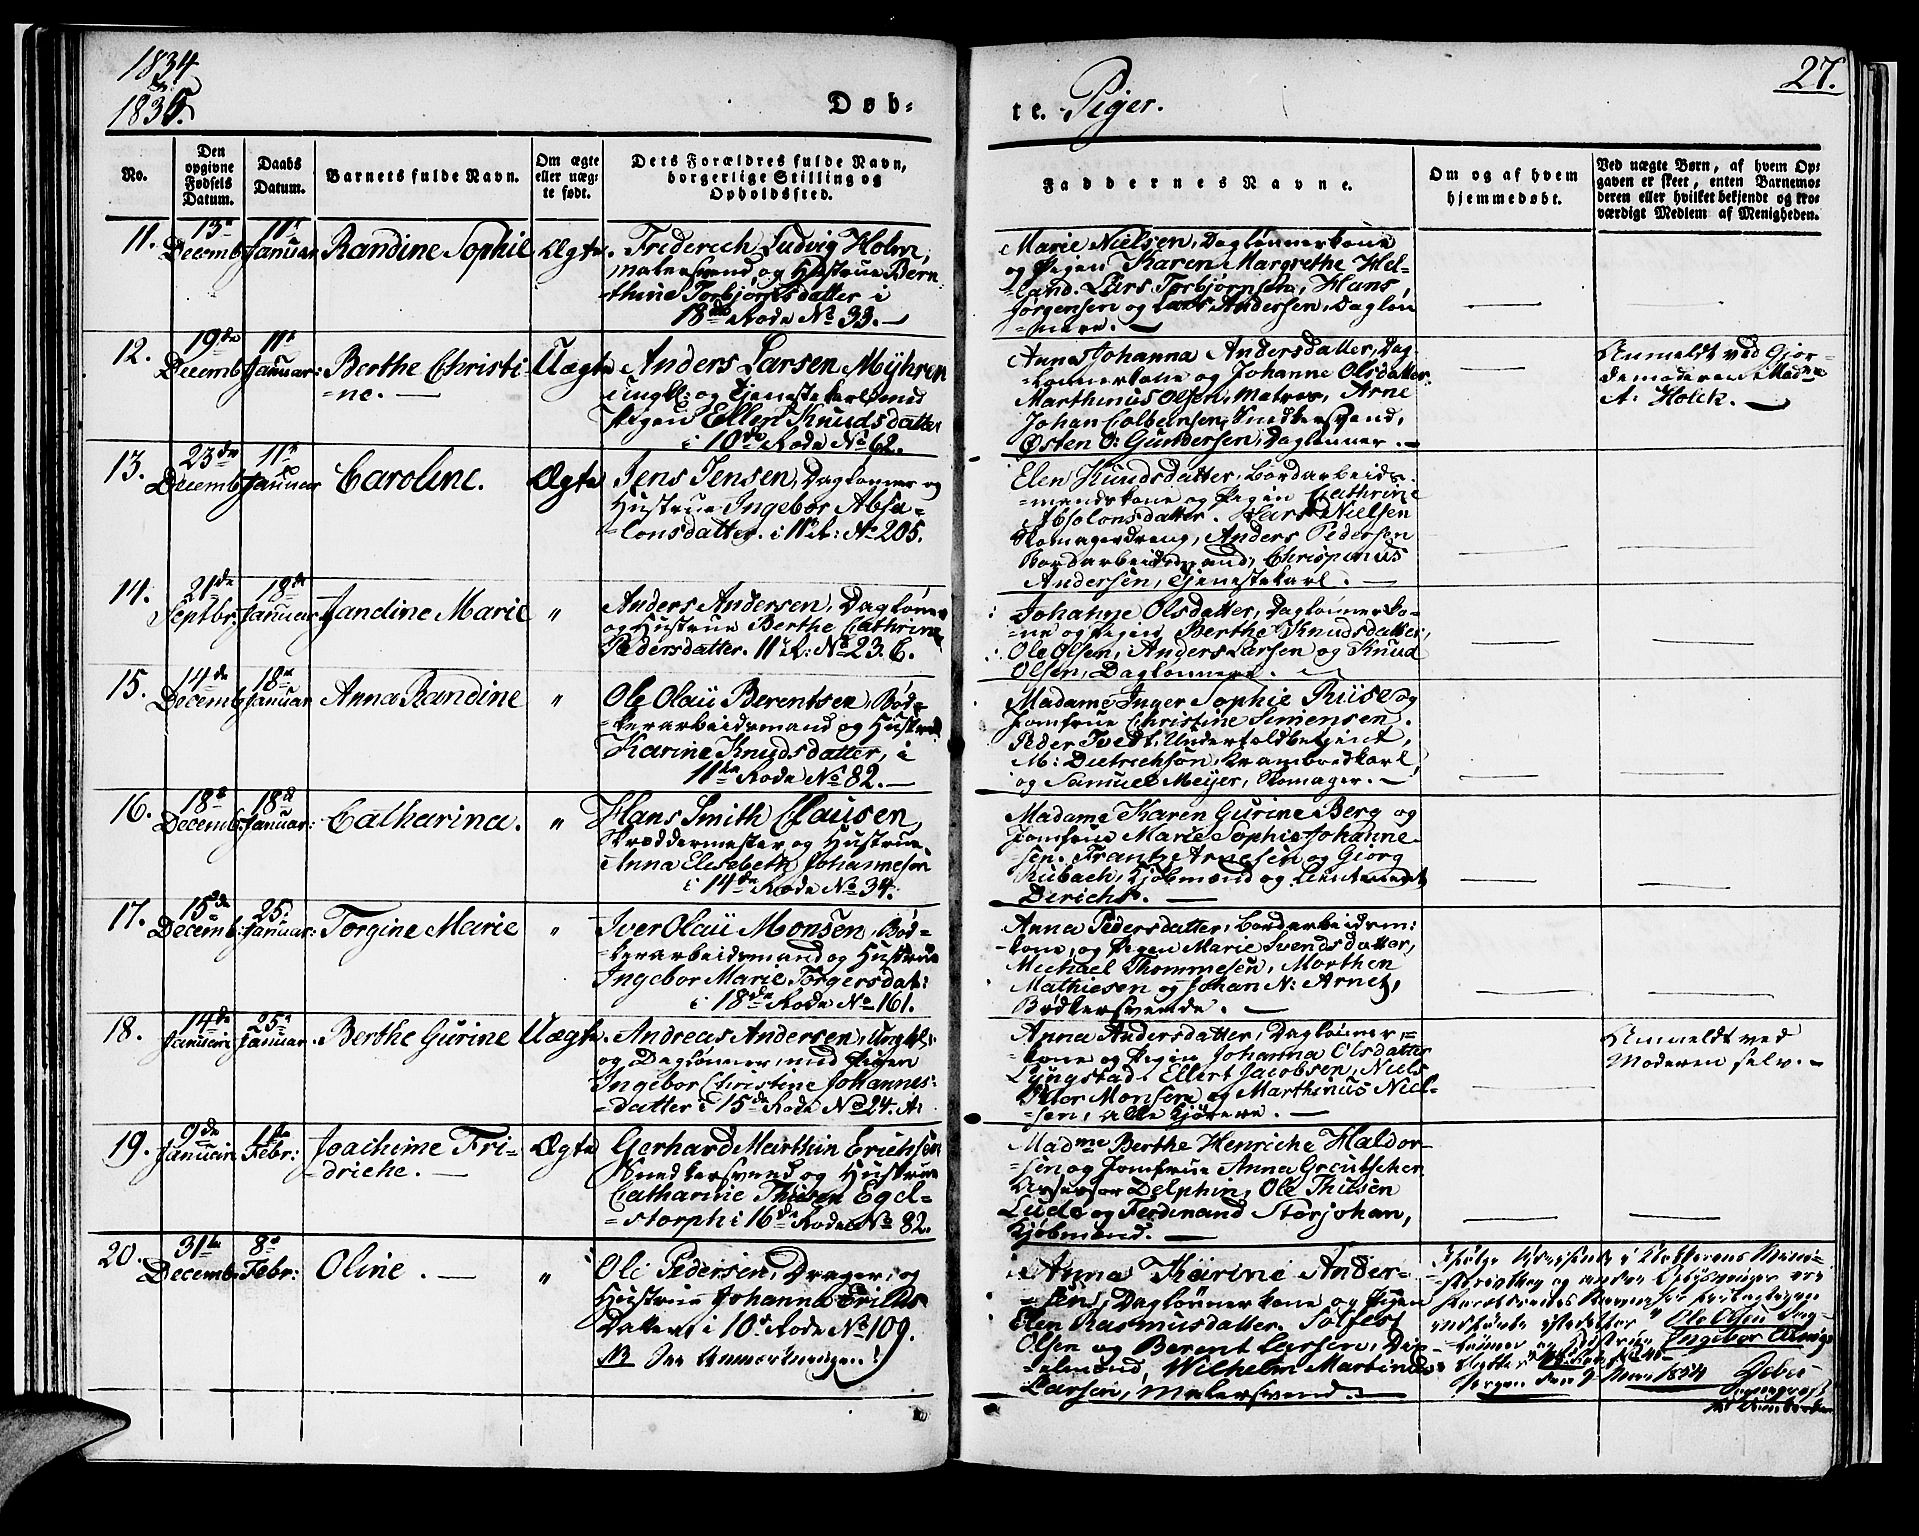 1834
&
1835.
27.
Døb-
te. Piger.
No.
Den opgivne Fødsels Datum.
Daabs Datum.
Barnets fulde Navn.
Om ægte eller uægte født.
Dets Forældres fulde Navn, borgerlige Stilling og Opholdssted.
Faddernes Navne.
Om og af hvem hjemmedøbt.
Ved uægte Børn, af hvem Opgaven er skeet, enten Barnemoderen eller hvilket bekjendt og troværdigt Medlem af Menigheden.
11. 13de Decemb. 11te Januar Randine Sophie Ægte.
Friderich Ludvig Holm,
Malersvend og Hustrue Bern-
-thine Torbjørnsdatter i
18de Rode No 33.
Marie Nielsen, Dagløñerkone
og Pigen Karen Margrethe Hel-
-land. Lars Torbjørnsen, Hans
Jørgensen og Lars Andersen, Dagløn-
-nere.
12. 19de Decemb. 11te Januar: Berthe Christi-
-ne. Uægte
Anders Larsen Myhren
ungk: og Tjenestekarl med
Pigen Ellen Knudsdatter
i 10de Rode No 62.
Anne Johanna Andersdatter, Dag-
-lønnerkone og Johanne Olsdatter.
Marthinus Olsen, Matros, Arne
Johan Colbensen, Snedkersvend,
Østen O: Gundersen, Daglønner.
Anmeldt ved Gjor-
demoderen Madme
A: Holck.
13. 23de Decemb. 11te Januar Caroline. Ægte
Jens Jensen, Dagløner og
Hustrue Ingebor Absa-
-lonsdatter. i 11te R: No 205.
Elen Knudsdatter, Bordarbeids-
-mandskone og Pigen Cathrine
Absolonsdatter. Lars Nielsen
Skomagerdreng, Anders Pedersen
Bordarbeidsmand, Chrispinus
Andersen, Tjenestekarl.
14. 21de Septbr. 18de Januar Jandine Marie "
Anders Andersen, Dagløner
og Hustrue Berthe Cathrine
Pedersdatter. 11te R: No 23. 6.
Johanne Olsdatter, Dagløñerko-
-ne og Pigen Berthe Knudsdatter,
Ole Olsen, Anders Larsen og Knud
Olsen, Daglønnere.
15. 14de Decemb. 18de Januar Anna Randine "
Ole Olaii Berentsen, Bød-
-kerarbeidsmand og Hustrue
Karine Knudsdatter, i
11te Rode No 82.
Madame Inger Sophie Riise og
Jomfrue Christine Simensen.
Peder Tvedt, Undertoldbetjent,
M: Dietrichson, Krambodkarl
og Samuel Meyer, Skomager.
16. 18de Decemb. 18de Januar: Catharina. "
Hans Smith Clausen,
Skreddermester og Hustrue
Anna Elisebeth Johannesen
i 14de Rode No 34.
Madame Karen Gurine Berg og
Jomfrue Marie Sophie Johanne-
-sen. Frantz Arnesen og Georg
Rubach, Kjøbmænd og Lieutenant
Derichs.
17. 15de Decemb: 25: Januar: Torgine Marie "
Iver Olaii Monsen, Bød-
-kerarbeidsmand og Hustrue
Ingebor Marie Torgersdat:
i 18de Rode No 161.
Anna Pedersdatter, Bordarbeidsm:
-kone, og Pigen Marie Svendsdatter,
Michael Thommesen, Morthen
Mathiesen og Johan N: Arnet,
Bødkersvende.
18. 14de Januari 25: Januar. Berthe Gurine Uægte.
Andreas Andersen, Ungkl:
og Dagløner, med Pigen
Ingebor Christine Johannes:
-datter i 15de Rode No 24. A.
Anna Andersdatter, Dagløner-
-kone og Pigen Johanna Olsdatter
Lyngstad. Ellert Jacobsen, Niels
Peter Monsen og Marthinus Niel-
-sen, alle Kjørere.
Anmeldt ved
Moderen selv.
19. 9de Januari 1te Febr: Joachime Fri-
-driche. Ægte
Gerhard Marthin Erichsen
Snedkersvend og Hustrue
Catharine Thiesen Egel-
-storph i 16de Rode No 82.
Madme Berthe Henriche Haldor-
-sen og Jomfrue Anna Greutscher
Assessor Delphin, Ole Thilsen
Lude og Ferdinand Storjohan,
Kjøbmænd.
20. 31te Decemb. 8de Febr: Oline. "
Ole Pedersen, Drager, og
Hustrue Johanna Erichs
Datter i 10de Rode No 109.
NB See Anmærkningen!
Anna Karine Ander-
-sen, Daglønnerkone og Pigen
Elen Rasmusdatter. Tolfest
Olsen og Berent Larsen,
Wilhelm Martinus
Larsen, Malersvend.
Ifølge
og andre Oplysninger ere
indførte istedetfor Ole Olsen Dag-
-lønner og Hustrue Ingebor
Bergen den 9 1854